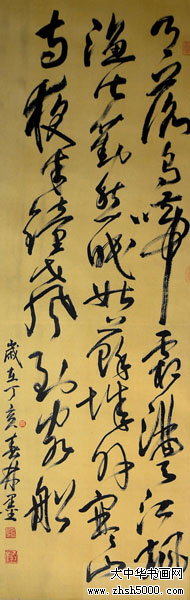 月落烏啼霜滿天江楓
漁火對愁眠姑蘇城外寒山
寺夜半鐘聲到客船
歲在丁亥春林
大中华书画网
www.zhsh5000.com